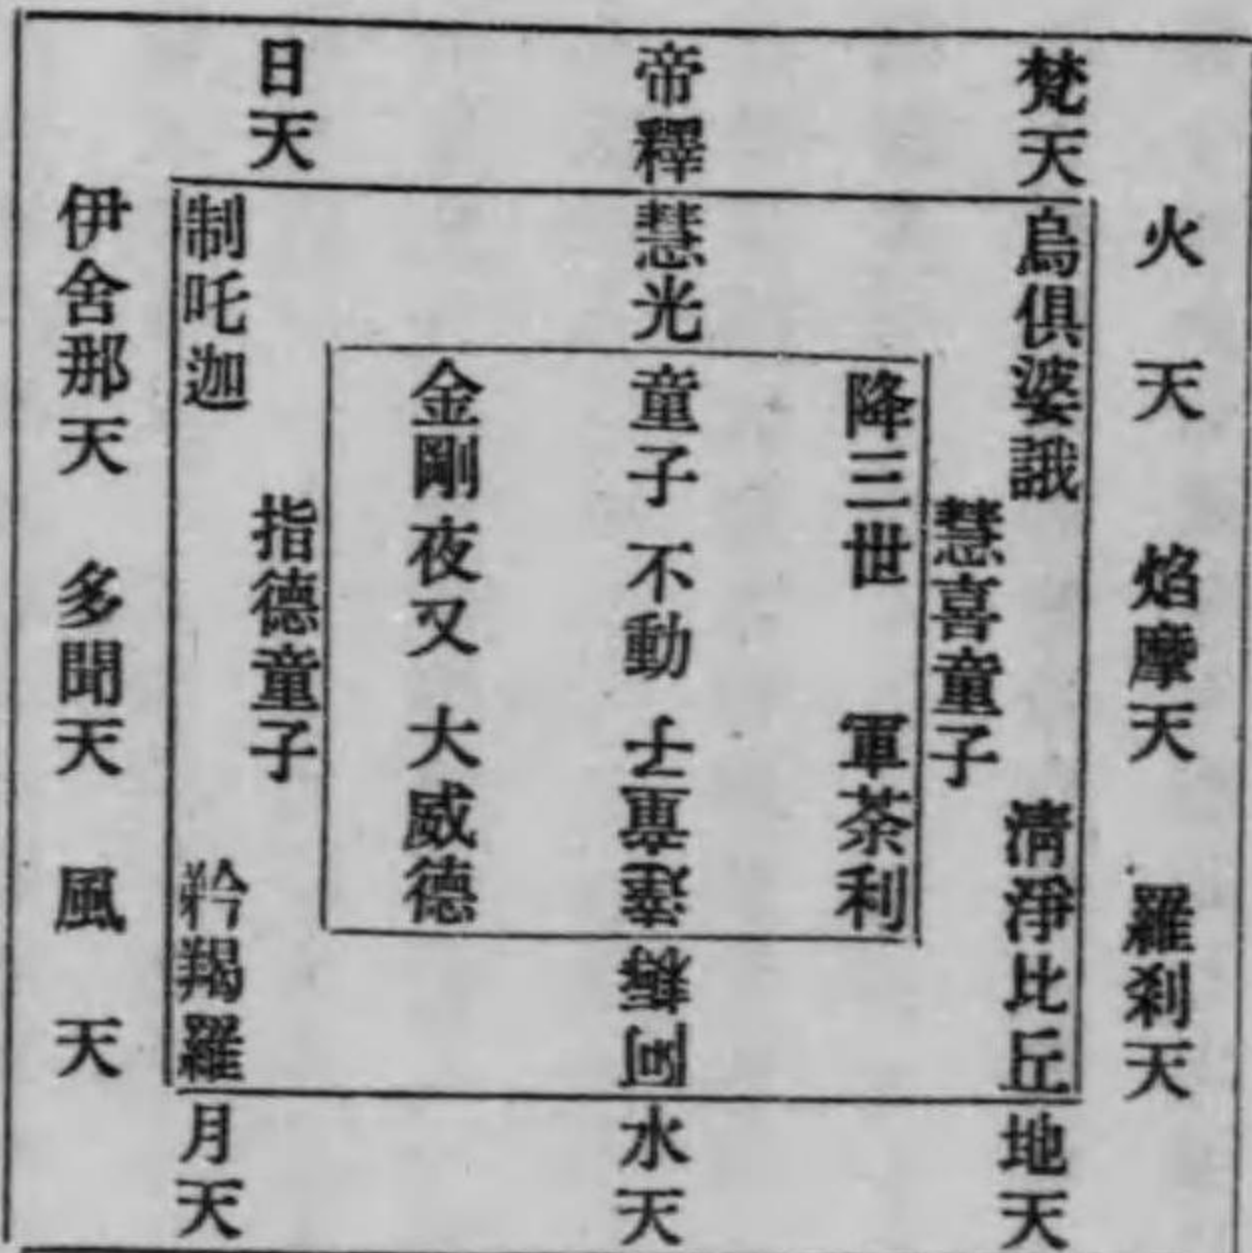 火天 焰摩天 羅刹天
梵天
烏俱婆誐
清淨比丘
地天
慧喜童子
降三世 軍茶利
帝釋
慧光童子
不動
阿耨達童子
水天
金剛夜叉 大威德
指德童子
日天
制吒迦
矜羯羅
月天
伊舍那天 多聞天 風天